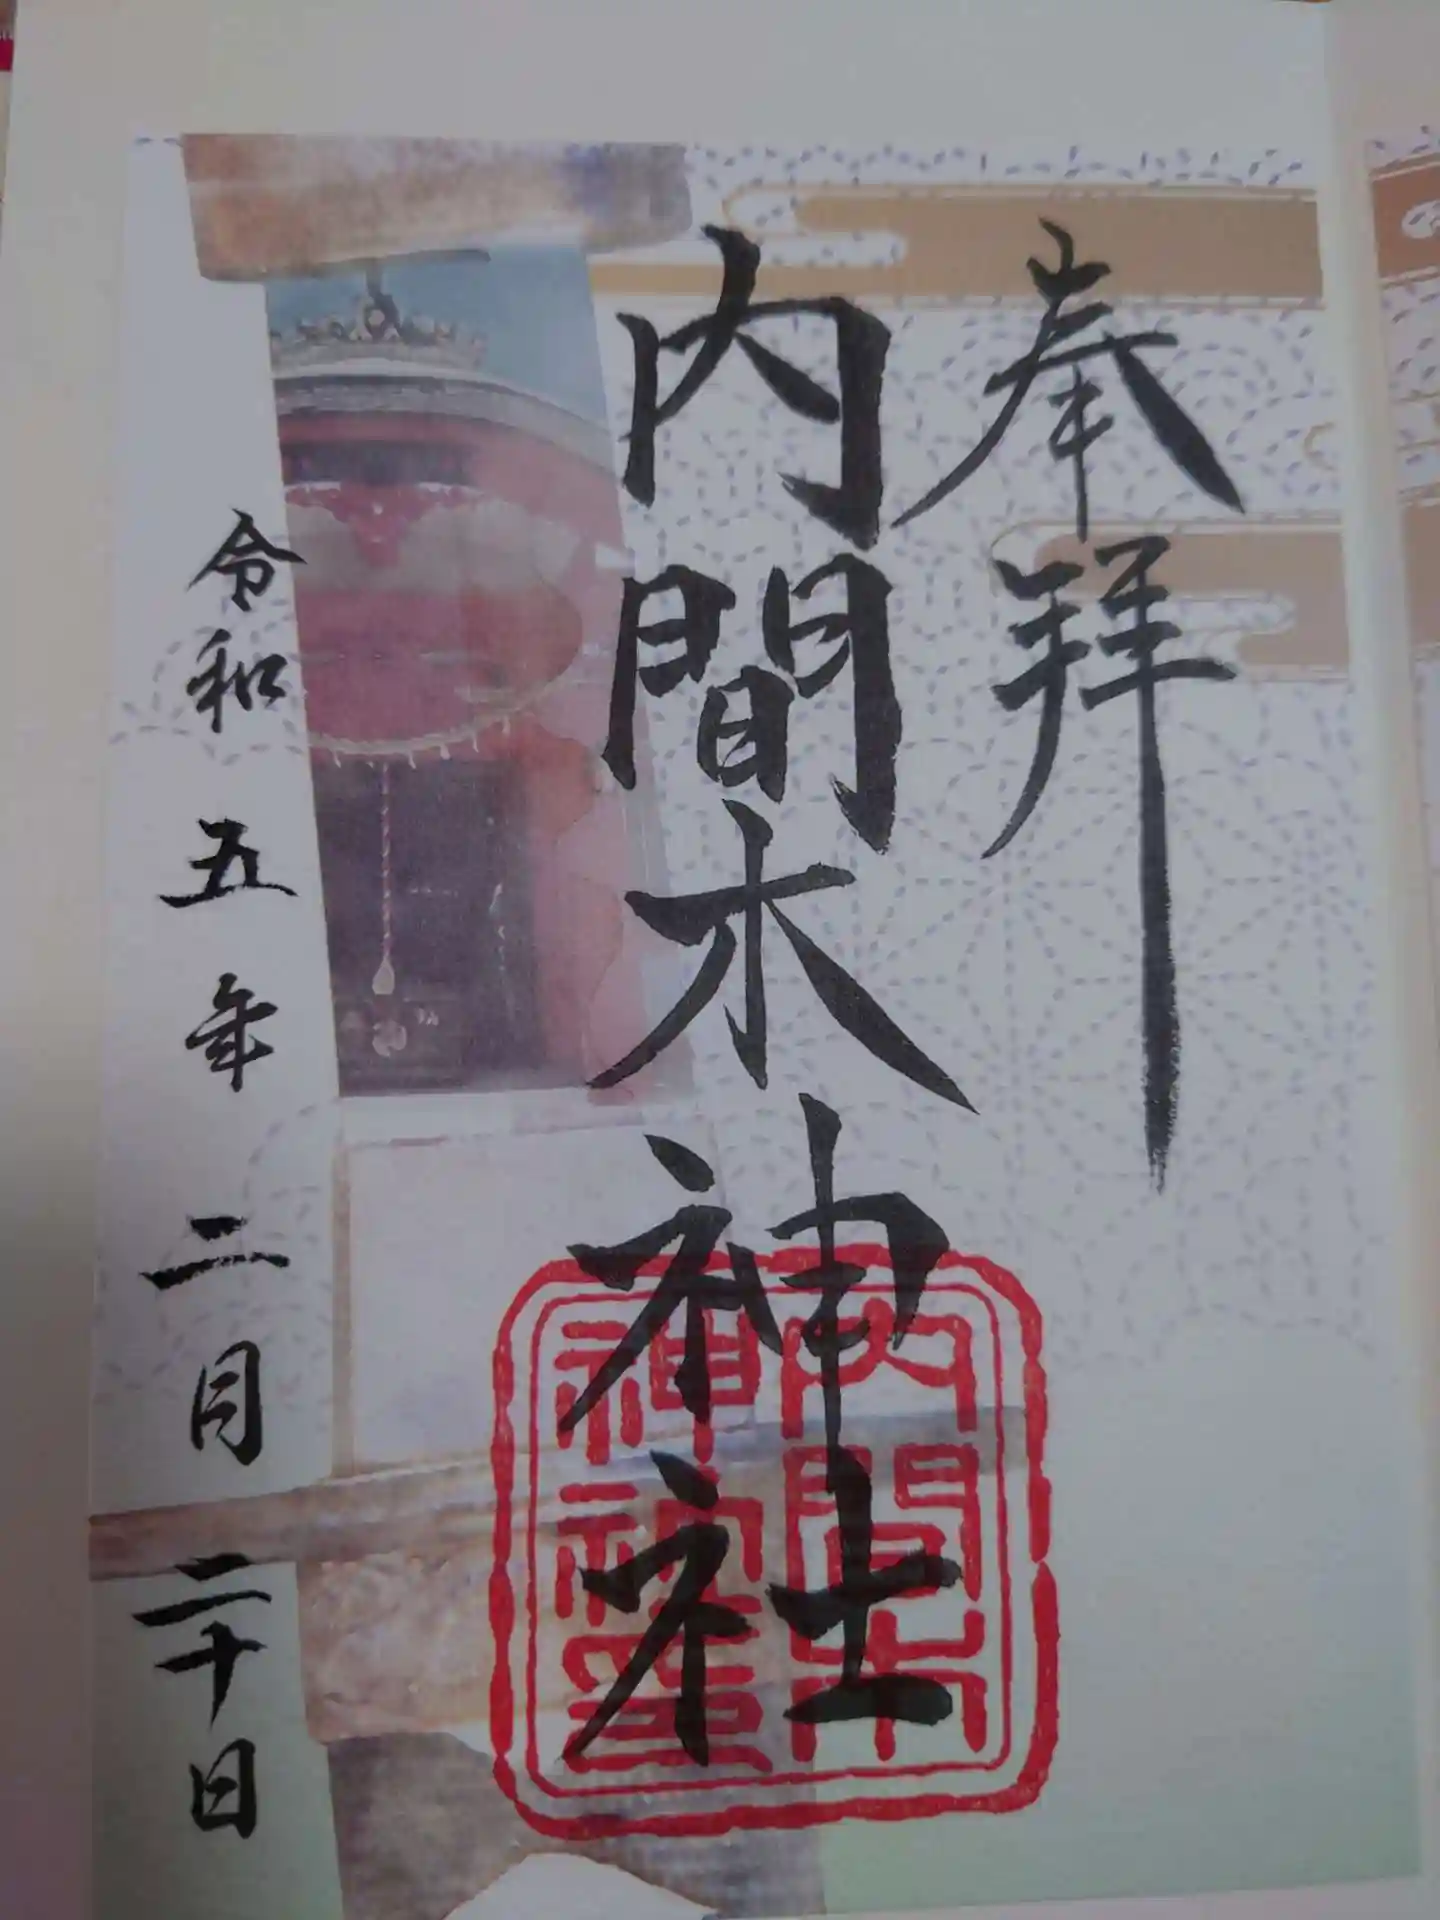 奉拝
内間木神社
令和五年二月二十日
内間木
神社璽